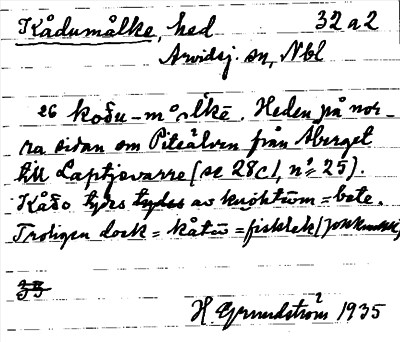 Kådumålke, hed 32 a 2
Arvidsj. sn, Nbl
26 koδu-målkē. Heden på nor-
ra sidan om Piteälven från Åberget
till Laptjovarre (se 28c1, nº 25).
Kåδo tydes av = bete.
Troligen dock = kåtū = fisklek
H. Grundström 1935